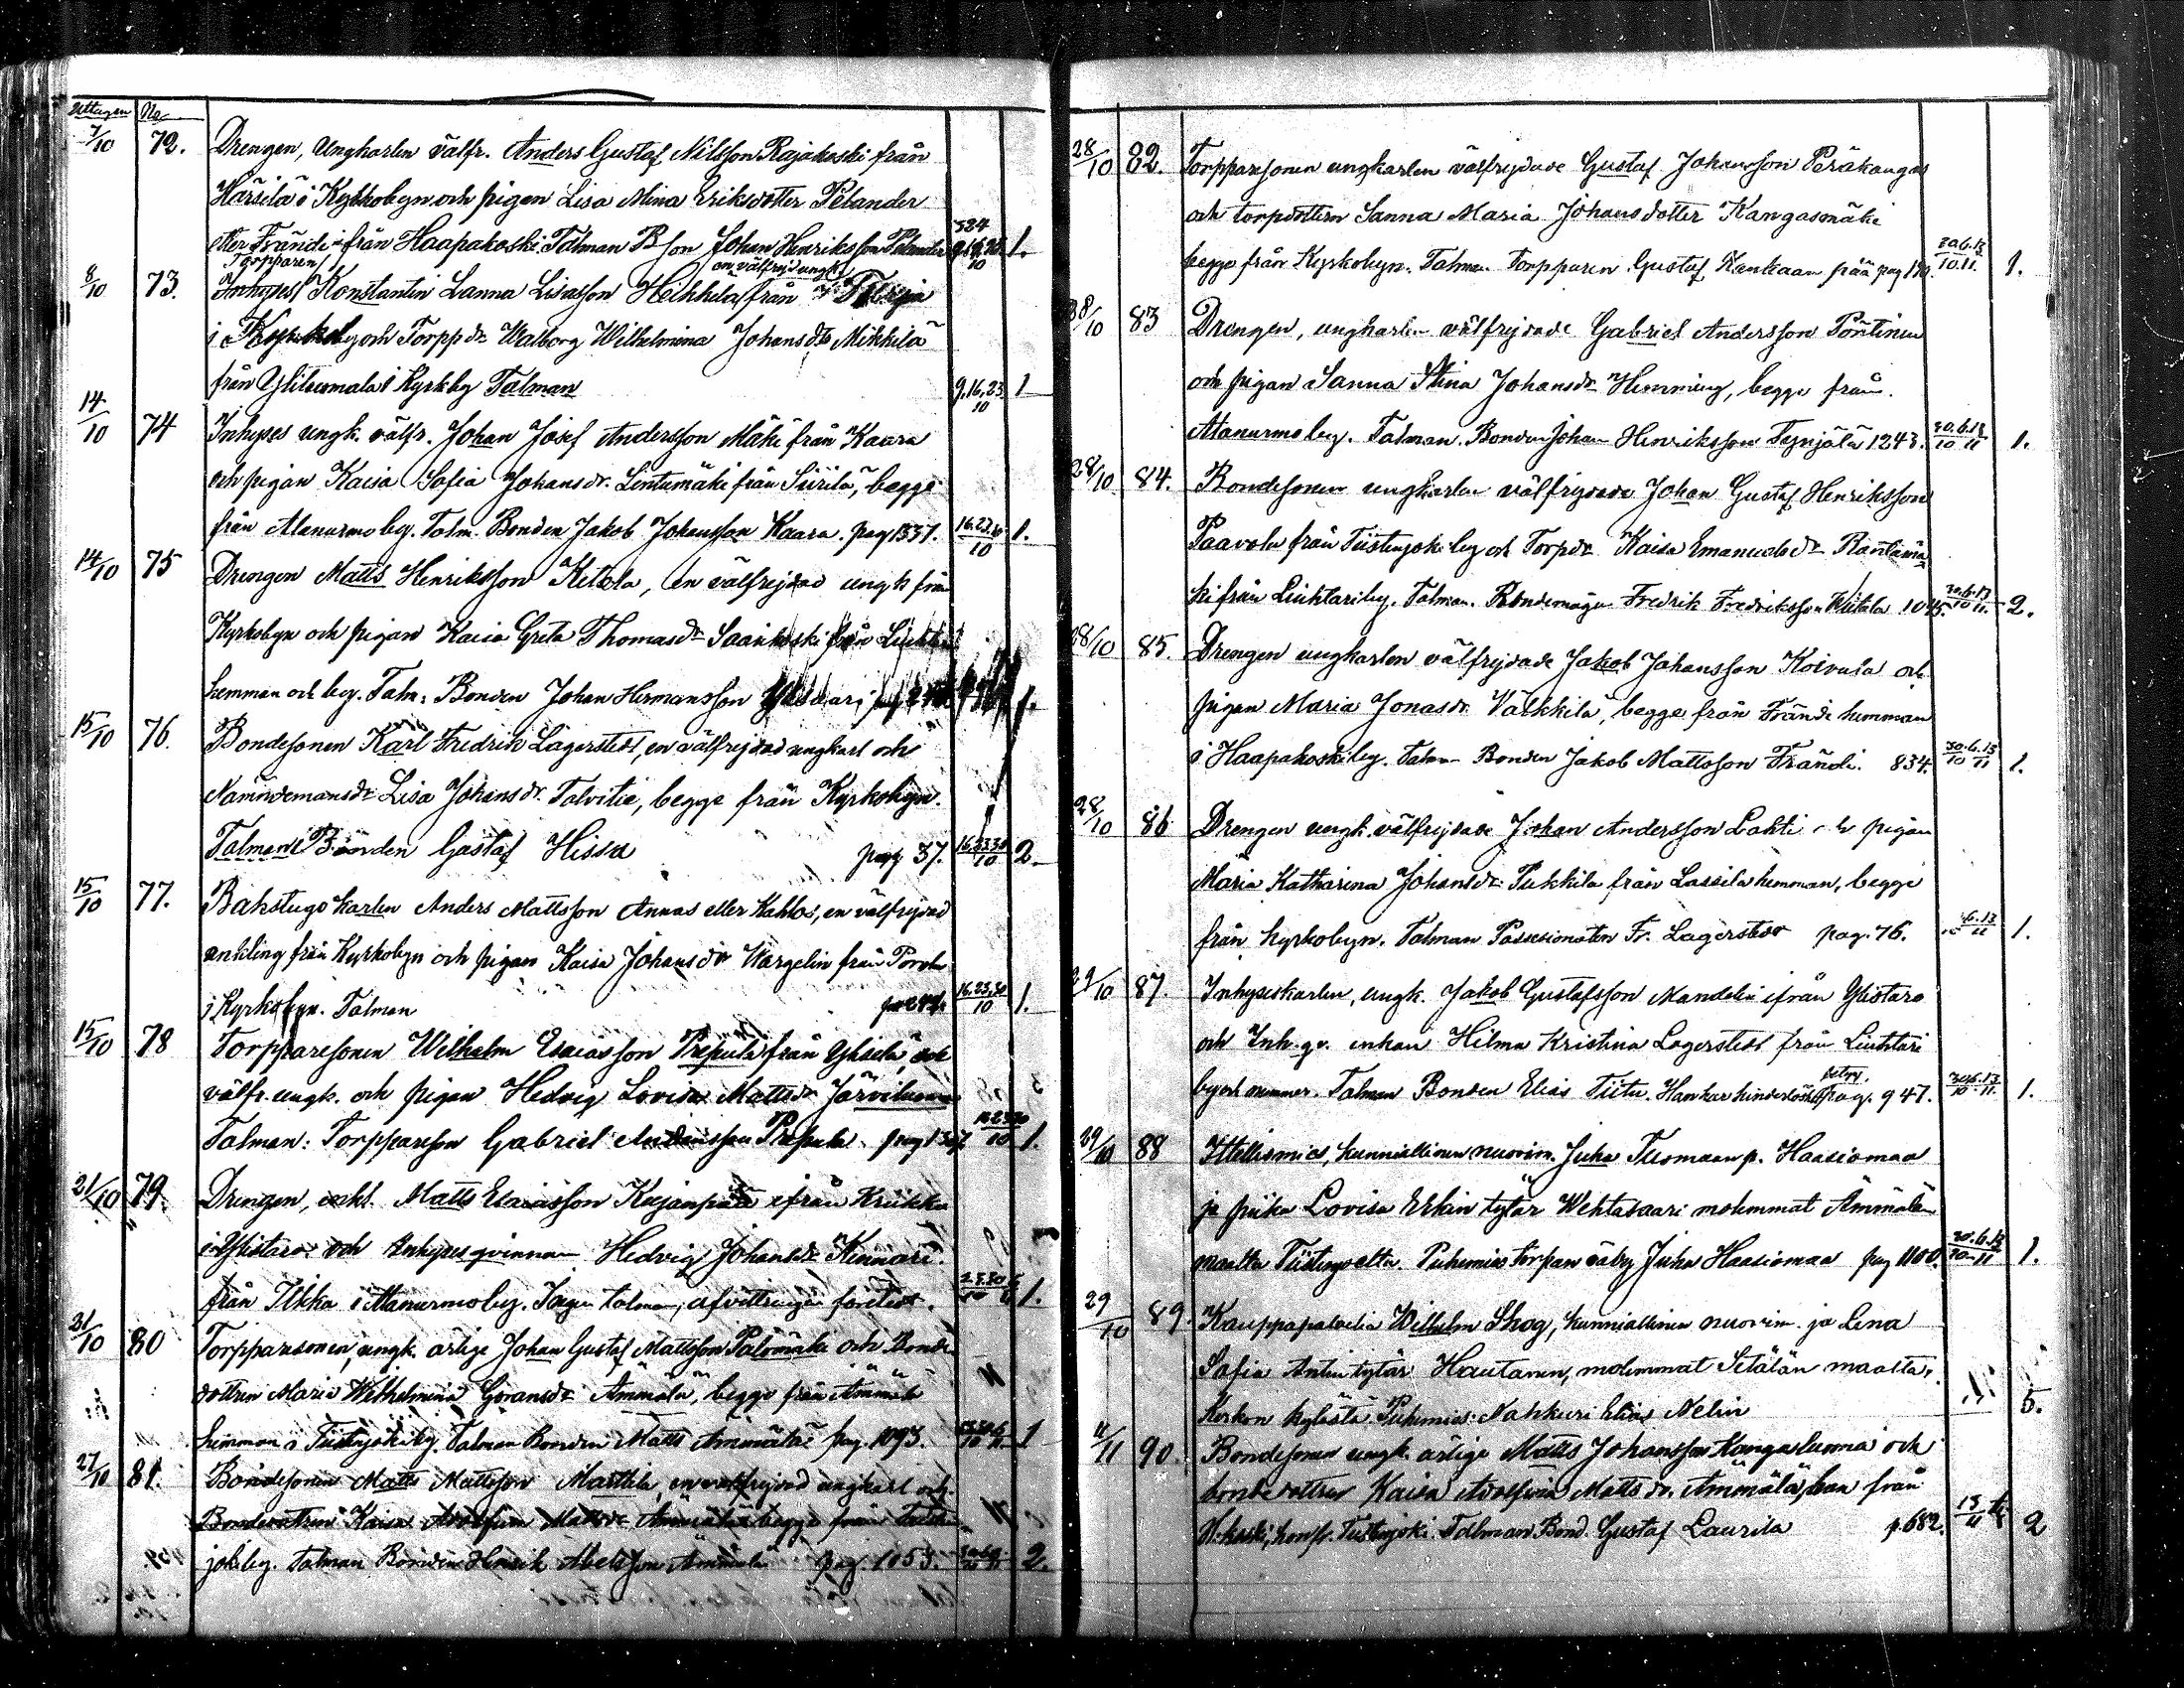 Uttagen No
7/10 72. Drengen, Ungkarlen välfr. Anders Gustaf Nilsson Rajakoski från
Härsilä i Kyrkobyn och pigan Lisa Mina Eriksdotter Pelander
eller Frändi från Haapakoski. Talman Bson Johan Henriksson Pelander 524 9.16.23/10 1.
Torpparen en välfrejd ungk.
8/10 73. Inhyses Konstantin Lanna Lisasson Heikkila från
i Kyrkoby och Torppdr Walborg Wilhelmina Johansdtr Mikkilä
från Yliluomala i Kyrkby Talman 9.16.23/10 1
14/10 74 Inhyses ungk. välfr. Johan Josef Andersson Mäki från Kaara
och pigan Kaisa Sofia Johansdr. Lintumäki från Siirilä, begge
från Alanurmo by. Talm. Bonden Jakob Johansson Kaara. pag 1337. 16.23.30/10 1.
14/10 75 Drengen Matts Henriksson Ketola, en välfrejdad ungk från
Kyrkobyn och pigan Kaisa Greta Thomasdr Saarikoski från
hemman och by. Talm: Bonden Johan Hermansson 1.
15/10 76. Bondesonen Karl Fredrik Lagerstedt, en välfrejdad ungkarl och
Nämndemansdr Lisa Johansdr. Talvitie, begge från Kyrkobyn.
Talman Bonden Gustaf Hissa pag 37. 16.23.30/10 2.
15/10 77. Bakstugo karlen Anders Mattsson Annas eller Kahlos, en välfrejdad
enkling från Kyrkobyn och pigan Kaisa Johansdr Wargelin från
i Kyrkobyn. Talman 16.23.30/10 1.
15/10 78 Torpparesonen Wilhelm Esaiasson Prepula från
välfr. ungk. och pigan Hedvig Lovisa Mattsdr Järviluoma
Talman: Torppareson Gabriel Prepula pag 1.
21/10 79. Drengen, enkl. Matts Esaiasson Kujanpää ifrån Kriikku
i Ylistaro och Inhysesqvinnan Hedvig Johansdr Kennari
från Ikka i Alanurmo by. Ingen talman, afvittringen företedt. 1.
21/10 80 Torpparesonen, ungk. ärlige Johan Gustaf Mattsson Palomäki och Bonde
dottren Maria Wilhelmina Göransdr Ämmälä, begge från Ämmälä
hemman i Tiistenjoki by. Talman Bonden Matts Ämmälä pag. 1093. 1
27/10 81. Bondesonen Matts Mattsson Marttila, en välfrejdad ungkarl och
Bondedottren Kaisa Adolfina Mattsdr Ämmälä begge från
joki by. Talman Bonden Henrik Abelsson Ämmälä pag. 1053. 2.
28/10 82. Torpparesonen ungkarlen välfrejdade Gustaf Johansson Peräkangas
och torpdottern Sanna Maria Johansdotter Kangasmäki
begge från Kyrkobyn. Talman Torpparen Gustaf Kankaan pää pag 30.6.13/10.11. 1.
28/10 83 Drengen, ungkarlen välfrejdade Gabriel Andersson Pöntinen
och pigan Sanna Stina Johansdr Hemming, begge från.
Alanurmo by. Talman. Bonden Johan Henriksson Tynjälä 1243. 30.6.13/10 11 1.
28/10 84. Bondesonen ungkarlen välfrejdade Johan Gustaf Henriksson
Paavola från Tiistenjoki by och Torpdr Kaisa Emanuelsdr Rantamä
ki från Liuhtari by. Talman. Bondemågen Fredrik Fredriksson 1045. 30.6.13/10 11. 2.
28/10 85. Drengen ungkarlen välfrejdade Jakob Johansson Koivula och
pigan Maria Jonasdr Välkkilä, begge från Frändi hemman
i Haapakoski by. Talman Bonden Jakob Mattsson Frändi. 834. 30.6.13/10 11 1.
28/10 86 Drengen ungk. välfrejdade Johan Andersson Lahti och pigan
Maria Katharina Johansdr Pukkila från Lassila hemman, begge
från kyrkobyn. Talman Possessionaten Fr. Lagerstedt pag. 76. 6.13/11 1.
29/10 87. Inhyseskarlen, ungk. Jakob Gustafsson Mandelin ifrån Ylistaro
och Inh. qv. enkan Hilma Kristina Lagerstedt från Liuhtari
betyg.
by och nummer. Talman Bonden Elias Tiitu. Han har hinderlöshets pag. 947. 30.6.13/10.11. 1.
29/10 88 Itellismies, kunniallinen nuorim. Juha Tuomaan p. Haasiomaa
ja piika Lovisa Erkin tytär Wehtasaari molemmat Ämmälän
maalta Tiistenjoelta. Puhemies torpan Juha Haasiomaa pag 1100. 30.6.13/10-11 1.
29/10 89. Kauppapalvelia Wilhelm Skog, kunniallinen nuorim. ja Lena
Sofia Antin tytär Hautanen, molemmat Setälän maalta,
Kerkon kylästä. Puhemies: Nahkuri Elias Nelin 5.
4/11 90. Bondesonen ungk. ärlige Matts Johansson Kangasluoma och
bondedottren Kaisa Adolfina Matts dr. Ämmälä, han från
Tiistenjoki. Talman Bond. Gustaf Laurila p. 682. 2